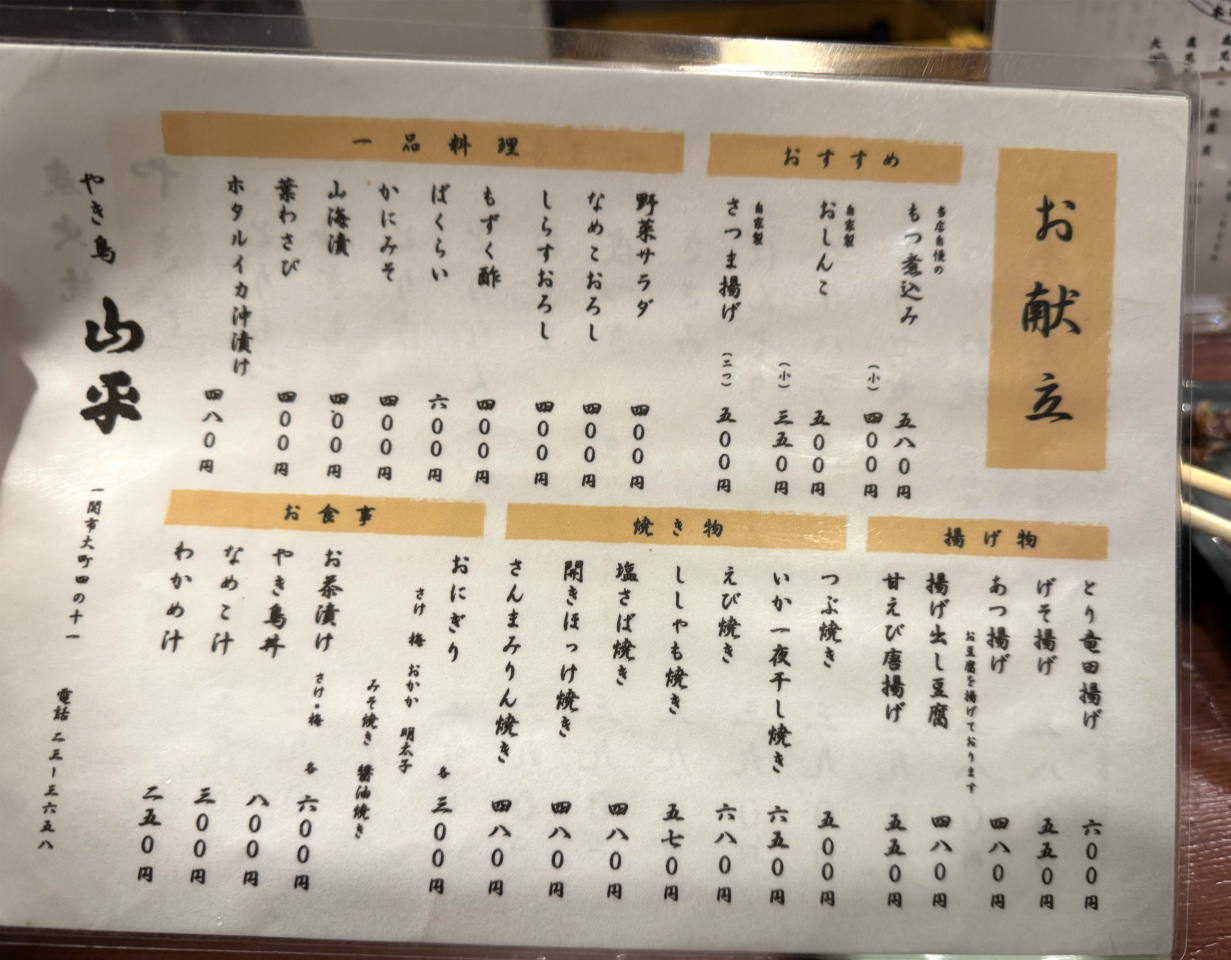 お献立
おすすめ
当店自慢の
もつ煮込み 五八〇円
(小) 四〇〇円
自家製
おしんこ 五〇〇円
(小) 三五〇円
自家製
さつま揚げ (三つ) 五〇〇円
一品料理
野菜サラダ 四〇〇円
なめこおろし 四〇〇円
しらすおろし 四〇〇円
もずく酢 四〇〇円
ばくらい 六〇〇円
かにみそ 四〇〇円
山海漬 四〇〇円
葉わさび 四〇〇円
ホタルイカ沖漬け 四八〇円
揚げ物
とり竜田揚げ 六〇〇円
げそ揚げ 五五〇円
あつ揚げ 四八〇円
お豆腐を揚げております
揚げ出し豆腐 四八〇円
甘えび唐揚げ 五五〇円
焼き物
つぶ焼き 五〇〇円
いか一夜干し焼き 六五〇円
えび焼き 六八〇円
ししゃも焼き 五七〇円
塩さば焼き 四八〇円
開きほっけ焼き 四八〇円
さんまみりん焼き 四八〇円
お食事
おにぎり 各 三〇〇円
さけ 梅 おかか 明太子
みそ焼き 醤油焼き
お茶漬け さけ・梅 各 六〇〇円
やき鳥丼 八〇〇円
なめこ汁 三〇〇円
わかめ汁 二五〇円
やき鳥 山平
一関市大町四の十一
電話 二三ー三六五八